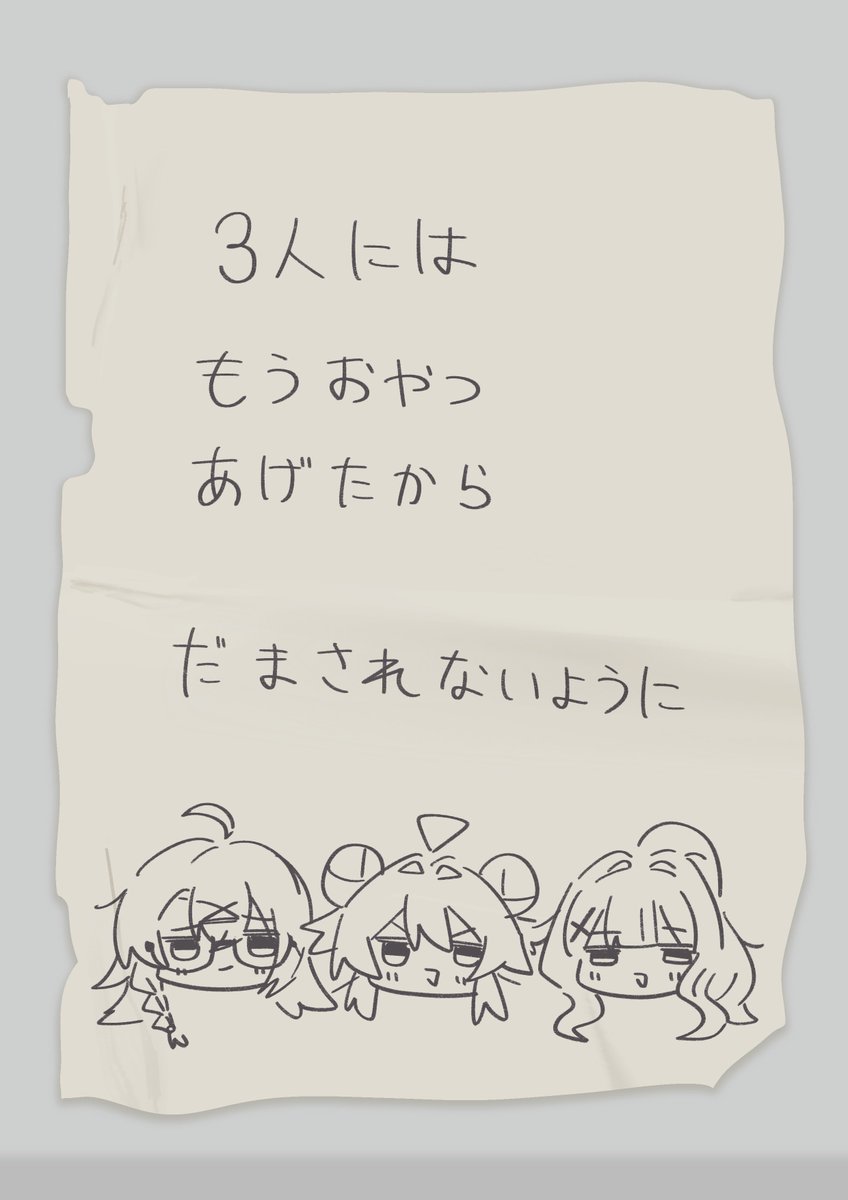 3人には
もうおやつ
あげたから
だまされないように